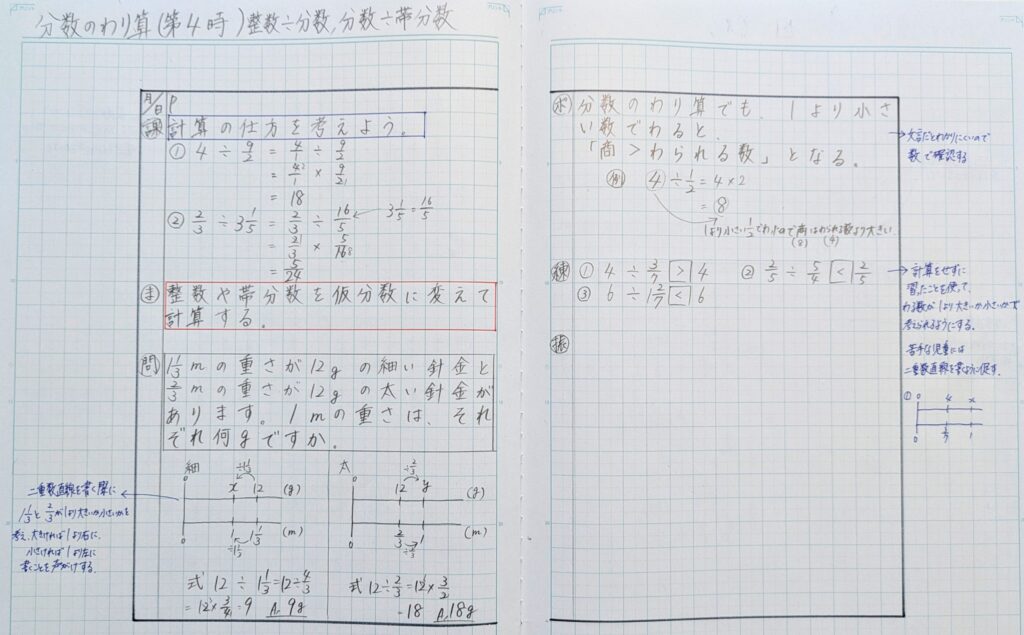 分数のわり算(第4時)整数÷分数,分数÷帯分数
月/日 P
課 計算の仕方を考えよう。
① 4 ÷ 9/2 = 4/1 ÷ 9/2
= 4/1 × 9/2
= 18
② 2/3 ÷ 3 1/5 = 2/3 ÷ 16/5 ← 3 1/5 = 16/5
= 2/3 × 5/16 8
= 5/24
ま 整数や帯分数を仮分数に変えて
計算する。
問 1 1/3 mの重さが12gの細い針金と
2/3 mの重さが12gの太い針金が
あります。1mの重さは、それ
ぞれ何gですか。
細
÷1 1/3
0 x 12 (g)
0 1 1 1/3 (m)
÷1 1/3
式 12 ÷ 1 1/3 = 12 ÷ 4/3
= 12 × 3/4 = 9 A. 9g
太
÷2/3
0 12 y (g)
0 2/3 1 (m)
÷2/3
式 12 ÷ 2/3 = 12 × 3/2
= 18 A. 18g
二重数直線を書く際に
1 1/3 と 2/3 が1より大きいか小さいかを
考え、大きければ1より右に、
小さければ1より左に
書くことを声がけする。
分数のわり算でも、1より小さ
い数でわると、
「商>わられる数」となる。
例 4 ÷ 1/2 = 4 × 2
= 8
1より小さい 1/2 でわるので商はわられる数より大きい
(8) (4)
→文言だとわかりにくいので
数で確認する
練 ① 4 ÷ 3/7 > 4 ② 2/5 ÷ 5/4 < 2/5
③ 6 ÷ 1 2/7 < 6
→計算をせずに
習ったことを使って、
わる数が1より大きいか小さいかで
考えられるようにする。
苦手な児童には
二重数直線を書くように促す。
① 0 4 x
0 3/7 1
振